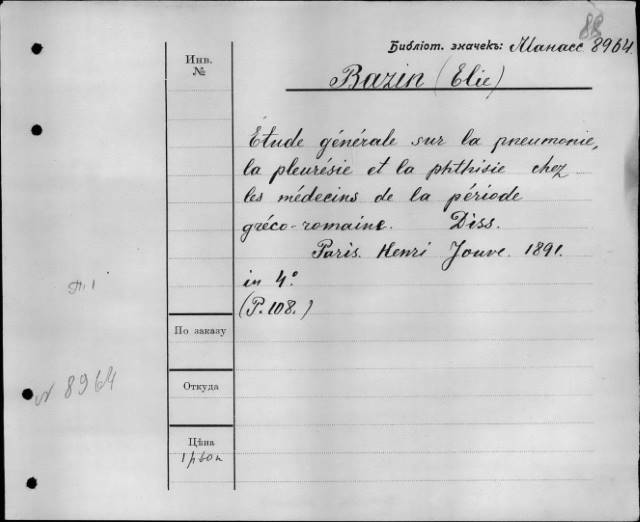 88
Библіот. значекъ: Манасс 8964.
Инв.
№
Bazin (Elie)
Etude générale sur la pneumonie,
la pleurésie et la phthisie chez
les médecins de la période
gréco-romaine. Diss.
Paris. Henri Jouve. 1891.
in 4°
(P. 108.)
По заказу
N 8964
Откуда
Цѣна